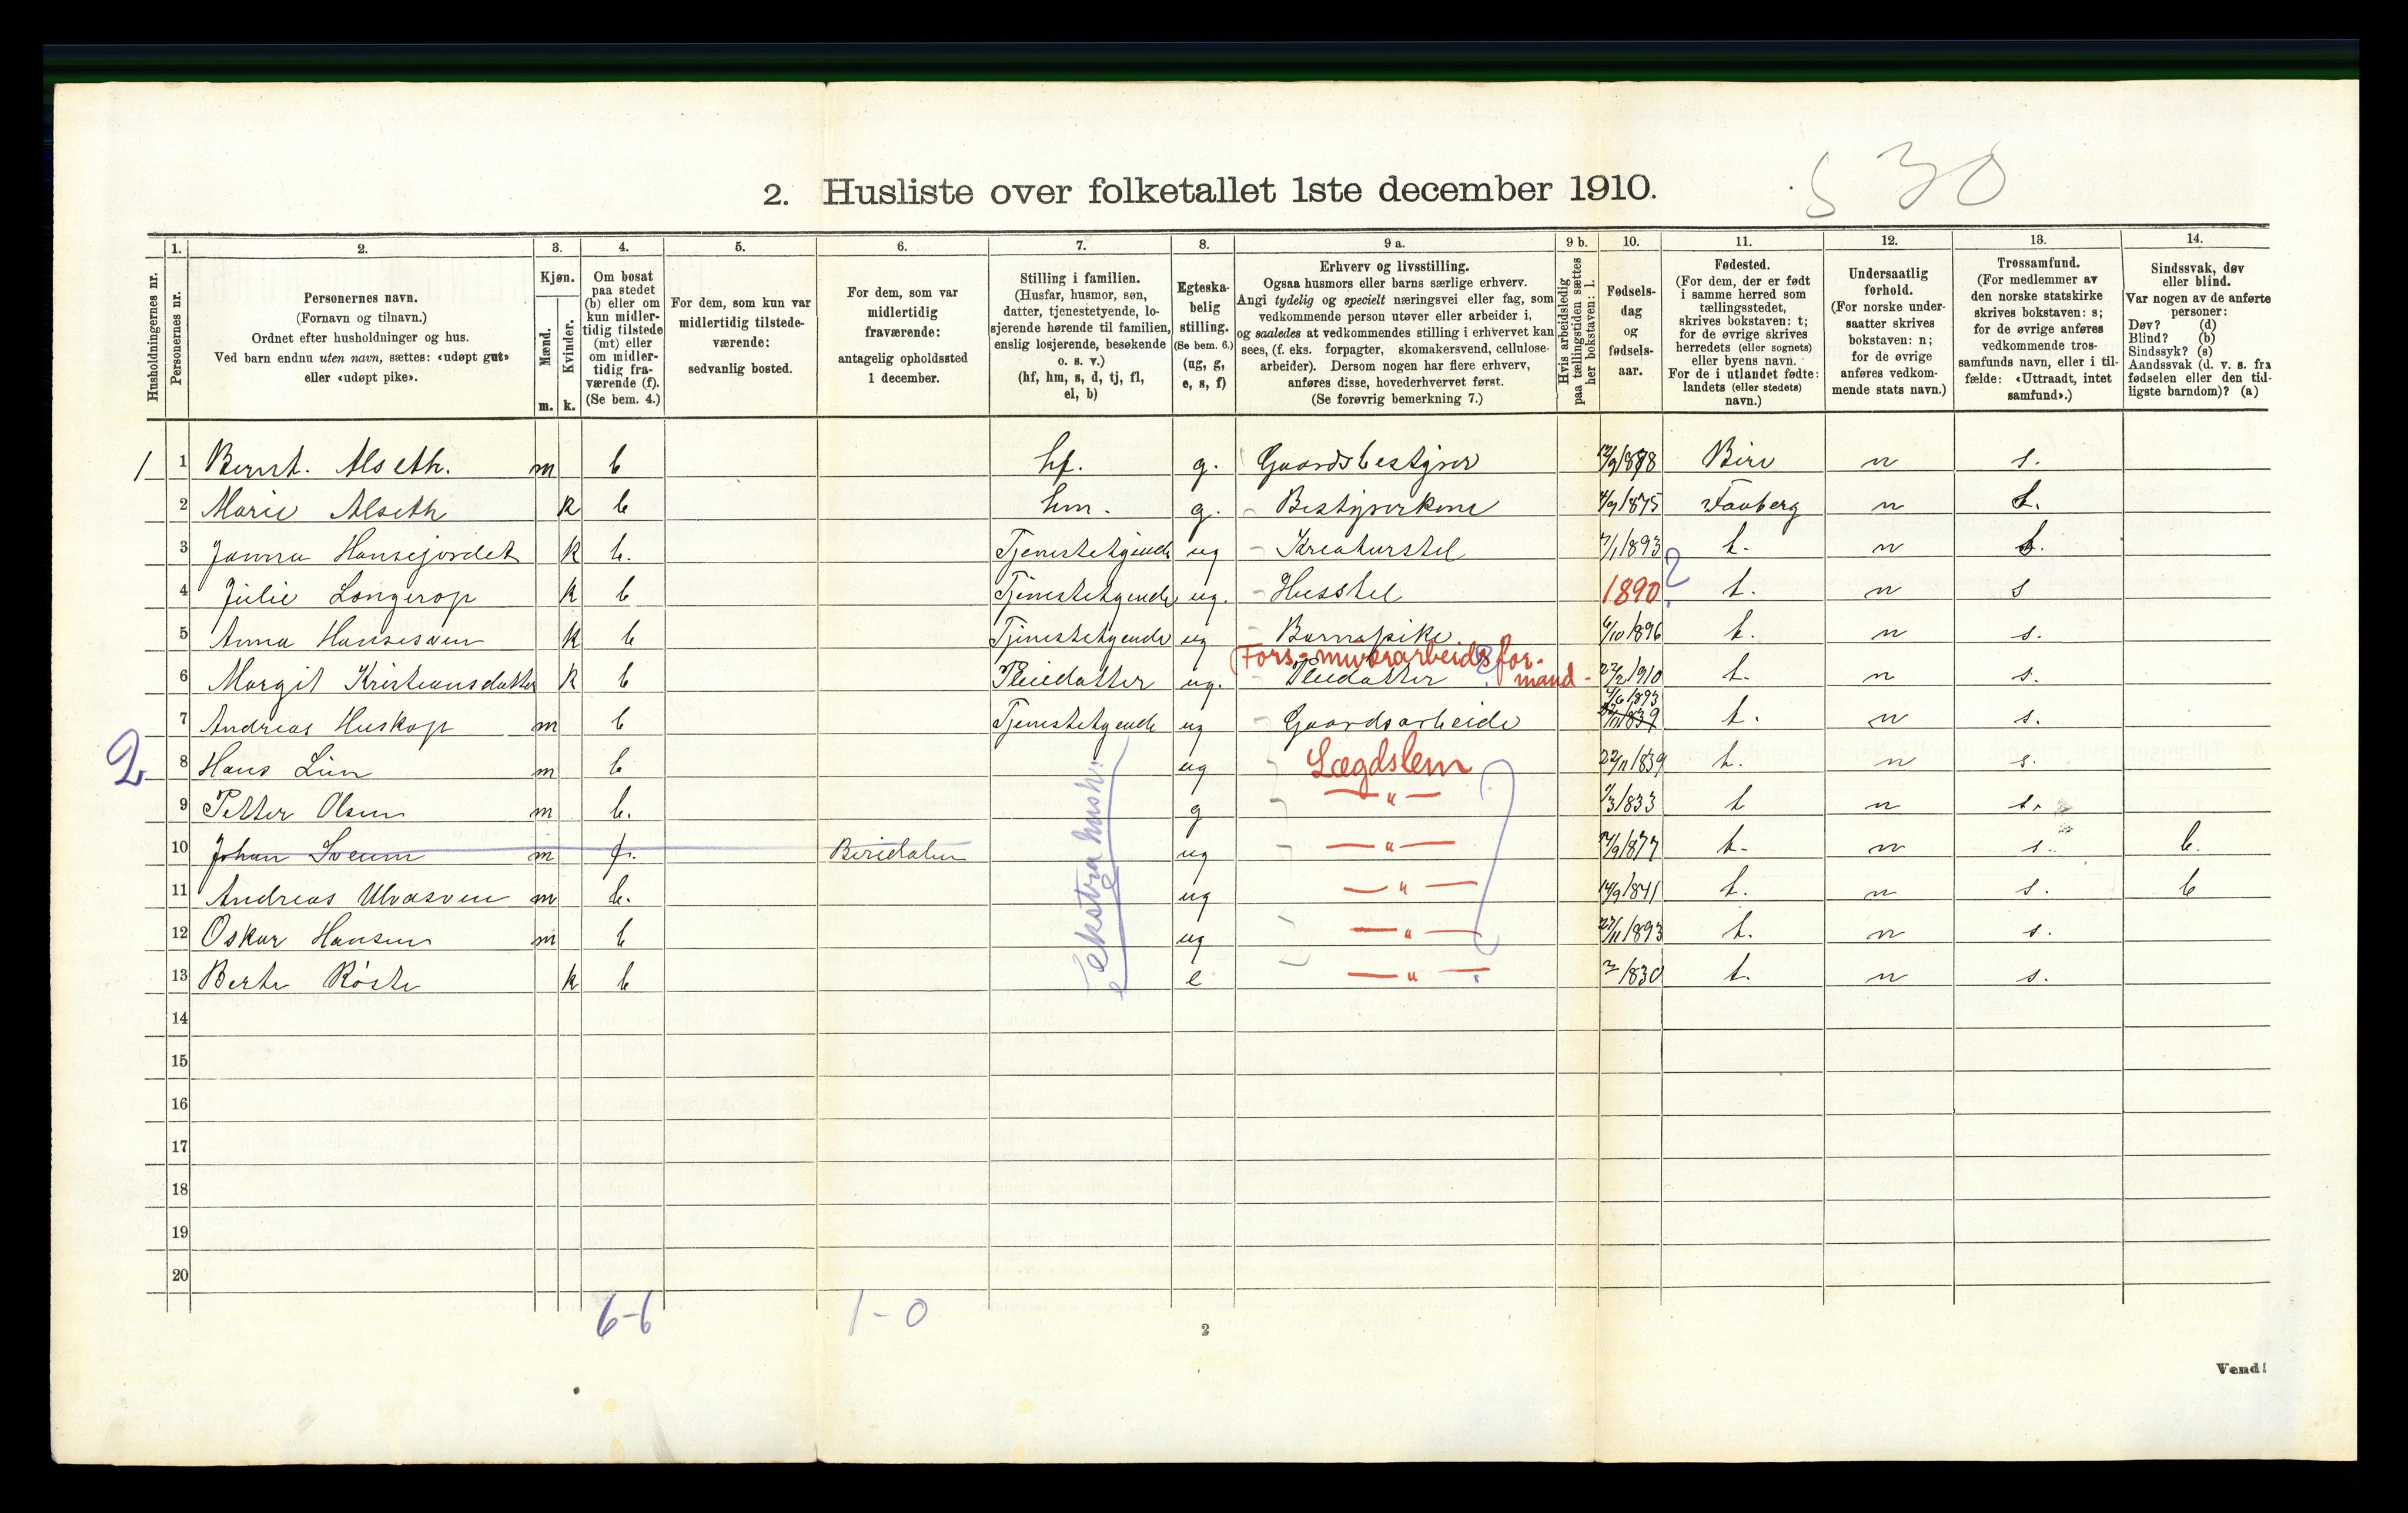 530
2. Husliste over folketallet 1ste december 1910.
Husholdningernes nr.
1. Personernes nr.
2. Personernes navn. (Fornavn og tilnavn.) Ordnet efter husholdninger og hus. Ved barn endnu uten navn, sættes: «udøpt gut» eller «udøpt pike».
3. Kjøn. Mænd. m. Kvinder. k.
4. Om bosat paa stedet (b) eller om kun midlertidig tilstede (mt) eller om midlertidig fraværende (f). (Se bem. 4.)
5. For dem, som kun var midlertidig tilstedeværende: sedvanlig bosted.
6. For dem, som var midlertidig fraværende: antagelig opholdssted 1 december.
7. Stilling i familien. (Husfar, husmor, søn, datter, tjenestetyende, losjerende hørende til familien, enslig losjerende, besøkende o. s. v.) (hf, hm, s, d, tj, fl, el, b)
8. Egteskabelig stilling. (Se bem. 6.) (ug, g, e, s, f)
9 a. Erhverv og livsstilling. Ogsaa husmors eller barns særlige erhverv. Angi tydelig og specielt næringsvei eller fag, som vedkommende person utøver eller arbeider i, og saaledes at vedkommendes stilling i erhvervet kan sees, (f. eks. forpagter, skomakersvend, cellulosearbeider). Dersom nogen har flere erhverv, anføres disse, hovederhvervet først. (Se forøvrig bemerkning 7.)
9 b. Hvis arbeidsledig paa tællingstiden sættes her bokstaven: l.
10. Fødselsdag og fødselsaar.
11. Fødested. (For dem, der er født i samme herred som tællingsstedet, skrives bokstaven: t; for de øvrige skrives herredets (eller sognets) eller byens navn. For de i utlandet fødte: landets (eller stedets) navn.)
12. Undersaatlig forhold. (For norske undersaatter skrives bokstaven: n; for de øvrige anføres vedkommende stats navn.)
13. Trossamfund. (For medlemmer av den norske statskirke skrives bokstaven: s; for de øvrige anføres vedkommende trossamfunds navn, eller i tilfælde: «Uttraadt, intet samfund».)
14. Sindssvak, døv eller blind. Var nogen av de anførte personer: Døv? (d) Blind? (b) Sindssyk? (s) Aandssvak (d. v. s. fra fødselen eller den tidligste barndom)? (a)
1 1 Bernt. Alseth. m b hf. g. Gaardsbestyrer Biri n s.
2 Marie Alseth k b hm. g. Bestyrerkone 4/9 1875 Faaberg n s.
3 Janna Hansejordet k b. Tjenestetyende ug Kreaturstel 7/1 1893 t. n s.
4 Julie Longerop k b Tjenestetyende ug. Husstel 1890 ? t. n s
5 Anna Hansesveen k b Tjenestetyende ug Barnepike 6/10 1896 t. n s.
Fors-murerarbeidsfor-
mand-
6 Margit Kristiansdatter k b Pleiedatter ug. Pleiedatter 22/2 1910 t. n s.
4/6 1893
7 Andreas Huskop m b Tjenestetyende ug Gaardsarbeide 22/11 1839 t. n s.
2 8 Hans Lien m b ug Lægdslem 22/11 1839 t. n s.
9 Petter Olsen m b. g — " — 1/3 1833 t n s.
10 Johan Sveum m f. Biridalen ug — " — 1877 t. n s. b.
11 Andreas Ulvasveen m b. ug — " — 14/9 1841 t. n s. b
12 Oskar Hansen m b ug — " — 27/11 1893 t. n s.
13 Berte Røste k b e — " — 1830 t. n s.
ekstra hush.
14
15
16
17
18
19
20
6-6 1-0
2
Vend!